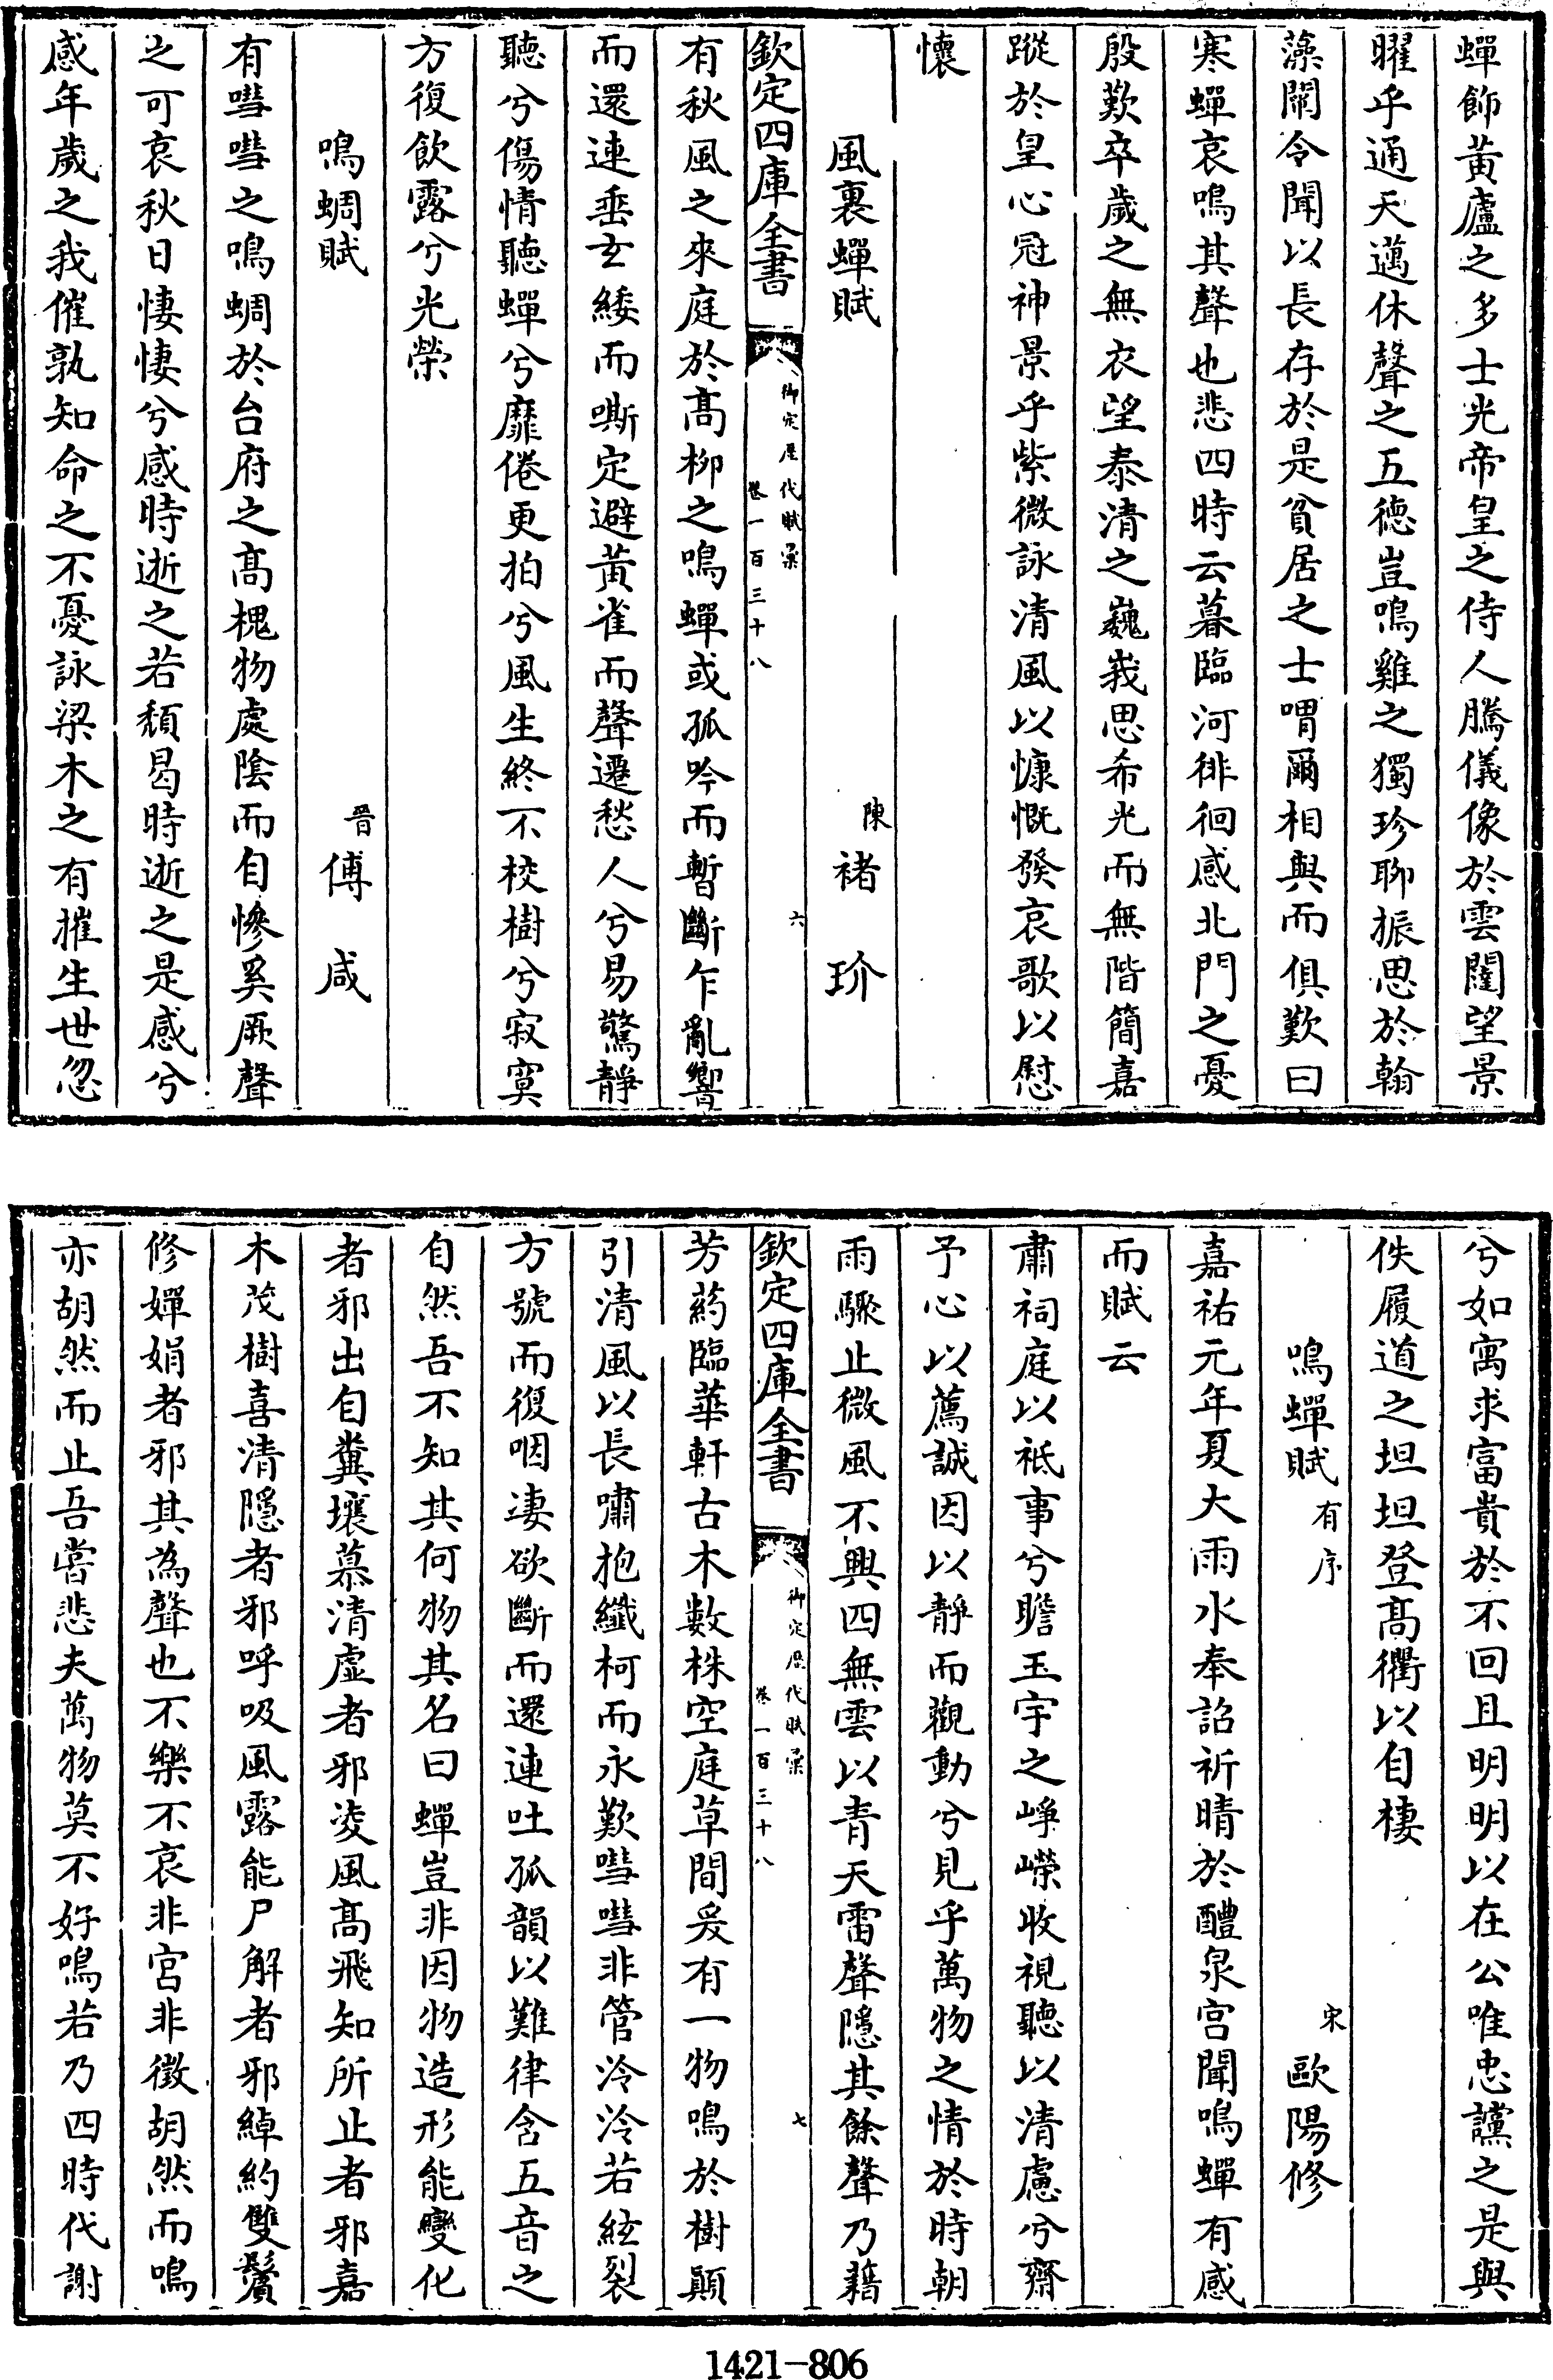 蟬飾黃廬之多士光帝皇之侍人騰儀像於雲闥望景
曜乎通天邁休聲之五德豈鳴雞之獨珍聊振思於翰
藻闡令聞以長存於是貧居之士喟爾相與而俱歎曰
寒蟬哀鳴其聲也悲四時云暮臨河徘徊感北門之憂
殷歎卒歲之無衣望泰清之巍峩思希光而無階簡嘉
蹤於皇心冠神景乎紫微詠清風以慷慨發哀歌以慰
懷
風裏蟬賦 陳 褚玠
欽定四庫全書 御定歷代賦彙 卷一百三十八 六
有秋風之來庭於髙柳之鳴蟬或孤吟而暫斷乍亂響
而還連垂玄緌而嘶定避黃雀而聲遷愁人兮易驚靜
聽兮傷情聽蟬兮靡倦更拍兮風生終不校樹兮寂寞
方復飲露兮光榮
鳴蜩賦 晉 傅咸
有嘒嘒之鳴蜩於台府之髙槐物處陰而自慘奚厥聲
之可哀秋日悽悽兮感時逝之若頹曷時逝之是感兮
感年歲之我催孰知命之不憂詠梁木之有摧生世忽
兮如寓求富貴於不回且明明以在公唯忠讜之是與
佚履道之坦坦登髙衢以自棲
鳴蟬賦 有序 宋 歐陽修
嘉祐元年夏大雨水奉詔祈晴於醴泉宮聞鳴蟬有感
而賦云
肅祠庭以祗事兮瞻玉宇之崢嶸收視聽以清慮兮齋
予心以薦誠因以靜而觀動兮見乎萬物之情於時朝
雨驟止微風不興四無雲以青天雷聲隱其餘聲乃藉
欽定四庫全書 御定歷代賦彙 卷一百三十八 七
芳葯臨華軒古木數株空庭草間爰有一物鳴於樹顚
引清風以長嘯抱纎柯而永歎嘒嘒非管泠泠若絃裂
方號而復咽凄欲斷而還連吐孤韻以難律含五音之
自然吾不知其何物其名曰蟬豈非因物造形能變化
者邪出自糞壤慕清虛者邪凌風髙飛知所止者邪嘉
木茂樹喜清隱者邪呼吸風露能尸解者邪綽約雙鬢
修嬋娟者邪其為聲也不樂不哀非宮非徵胡然而鳴
亦胡然而止吾嘗悲夫萬物莫不好鳴若乃四時代謝
1421-806